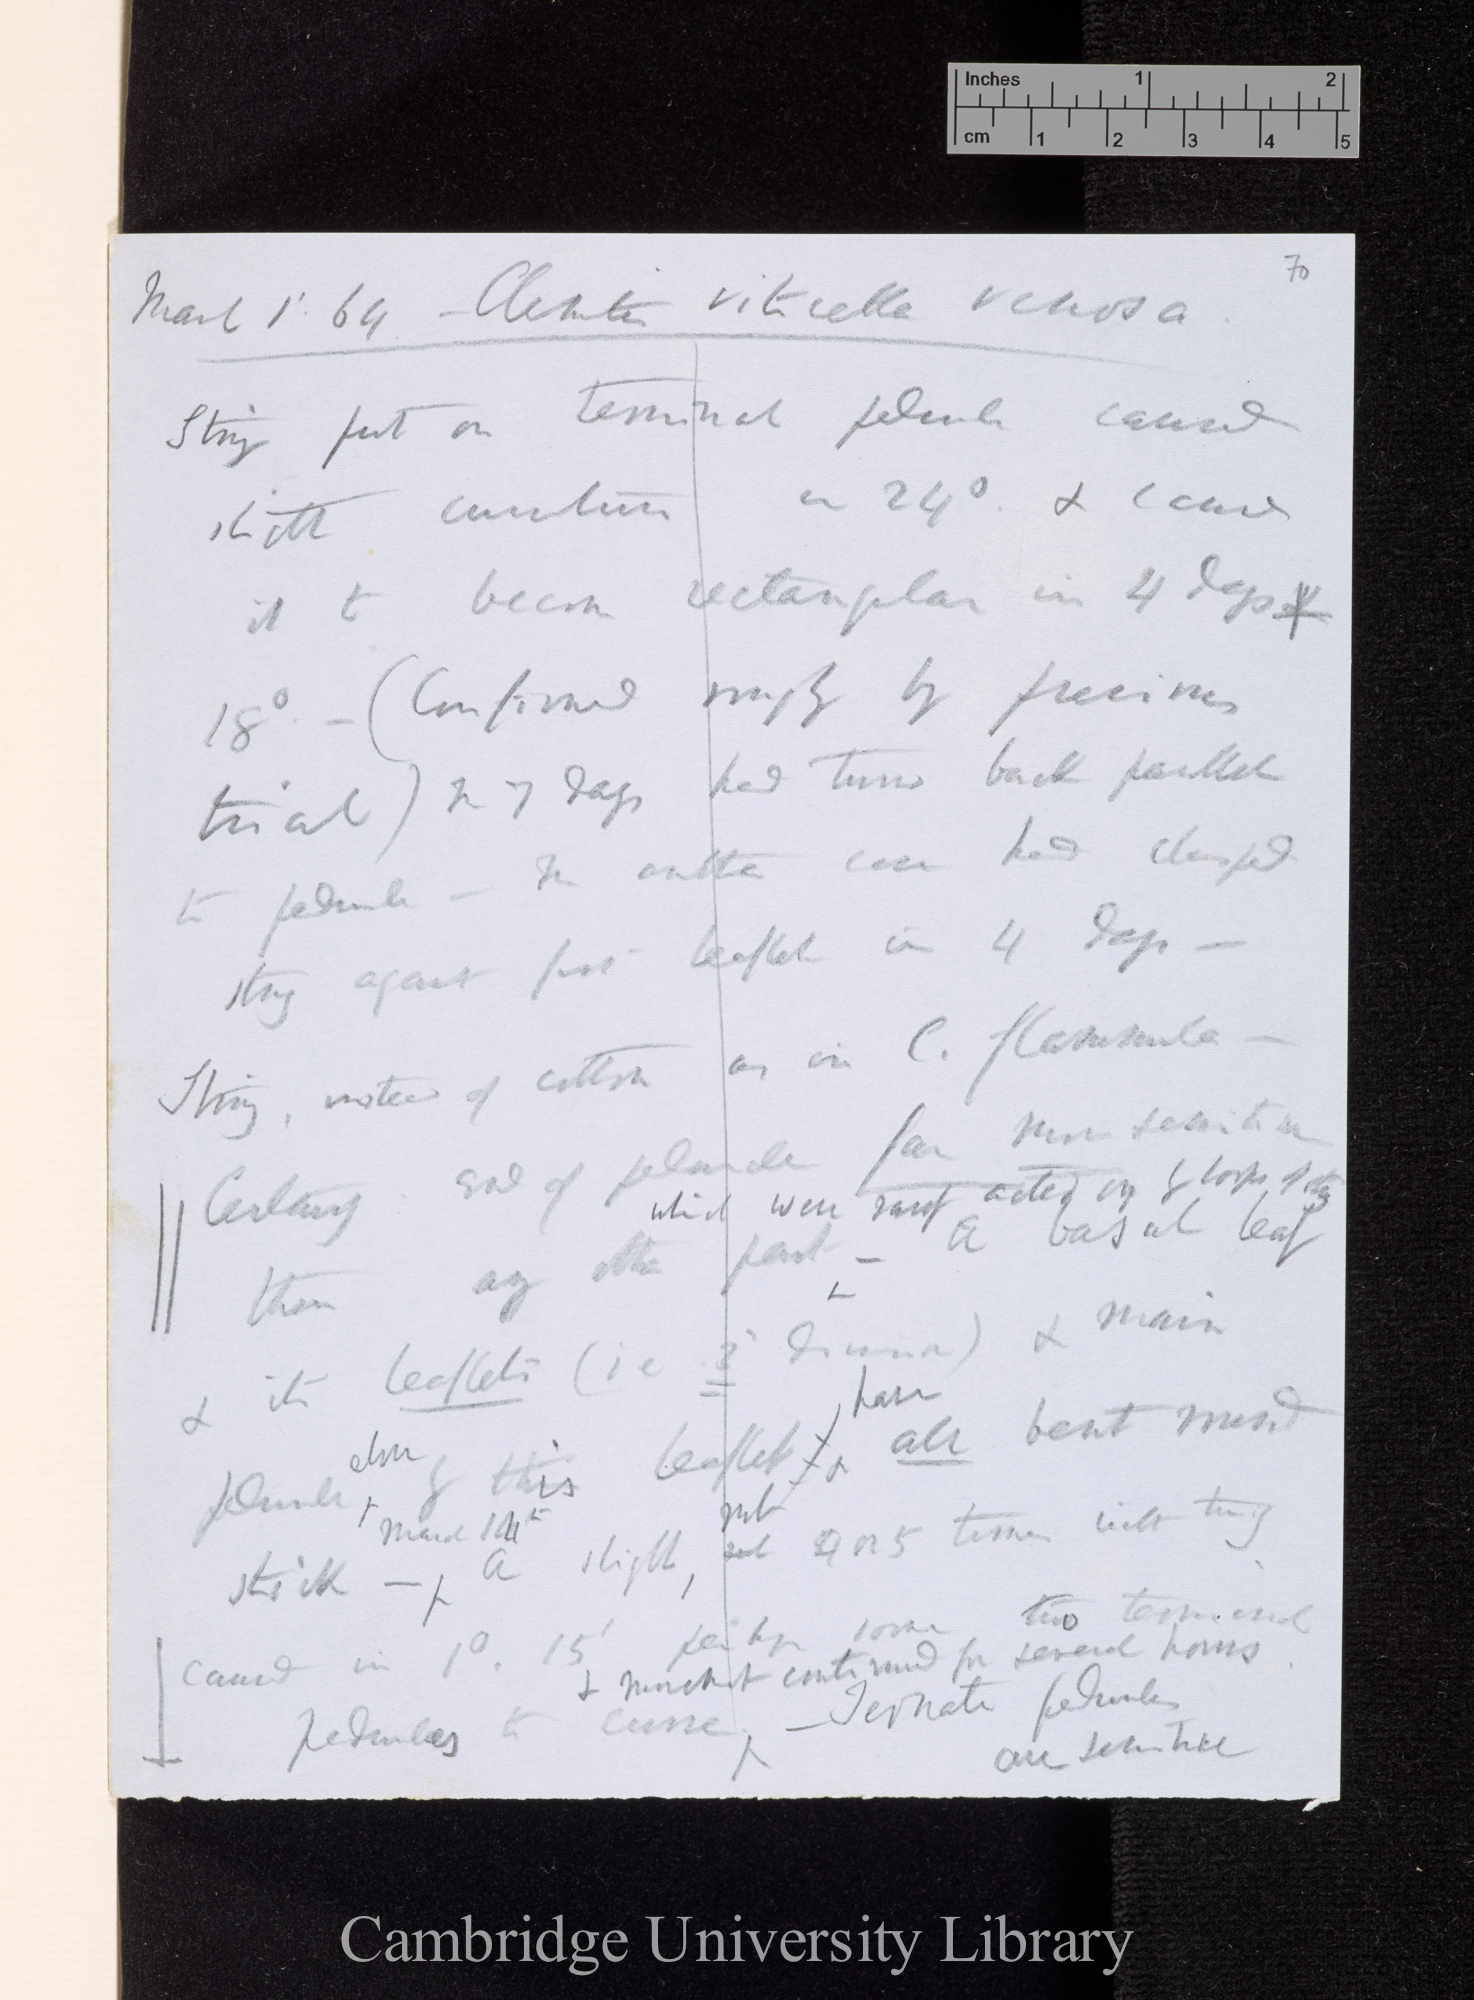 Inches 1 2
cm 1 2 3 4 5
70
March 1' 64 – Clematis viticella venosa.
String put on terminal peduncle caused
slight curvature in 24° & caused
it to become rectangular in 4 days
18° – (Confirmed roughly by previous
trial) In 7 days had turned back parallel
to peduncle – In another case had clasped
string against first leaflet in 4 days –
String, instead of cotton as in C. flammula –
Certainly end of peduncle far more sensitive
which were rarely acted on by loops of string
than any other part – A basal leaf
& its leaflets (ie 3 division) & main
have
peduncle, above of this leaflet & all bent round
March 14th rub
stick – A slight, 4 or 5 times with twig
caused in 1°. 15' perhaps some two terminal
& movement continued for several hours.
peduncles to curve, – Ternate peduncles
are sensitive
Cambridge University Library